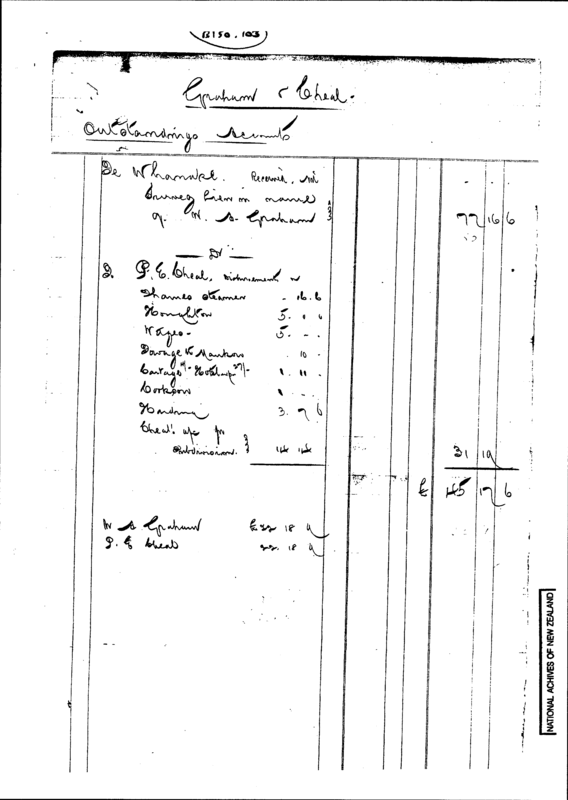 B150.103
Graham & Cheal.
Outstandings Account
De Whanake. Received, on
Survey Lien in name
of W. S. Graham 77 16 6
Dr
P. E. Cheal, Disbursements
Thames Steamer - 16. 6
Houghton 5.
Wages - 5. - -
10 -
Cartage Hotel 1. 11 -
1 - -
3. 7 6
Cheal's a/c for
Subdivision. 14 14
31 19
£ 45 17 6
W S Graham £22 18 9
P. E Cheal 22. 18 9
NATIONAL ACHIVES OF NEW ZEALAND